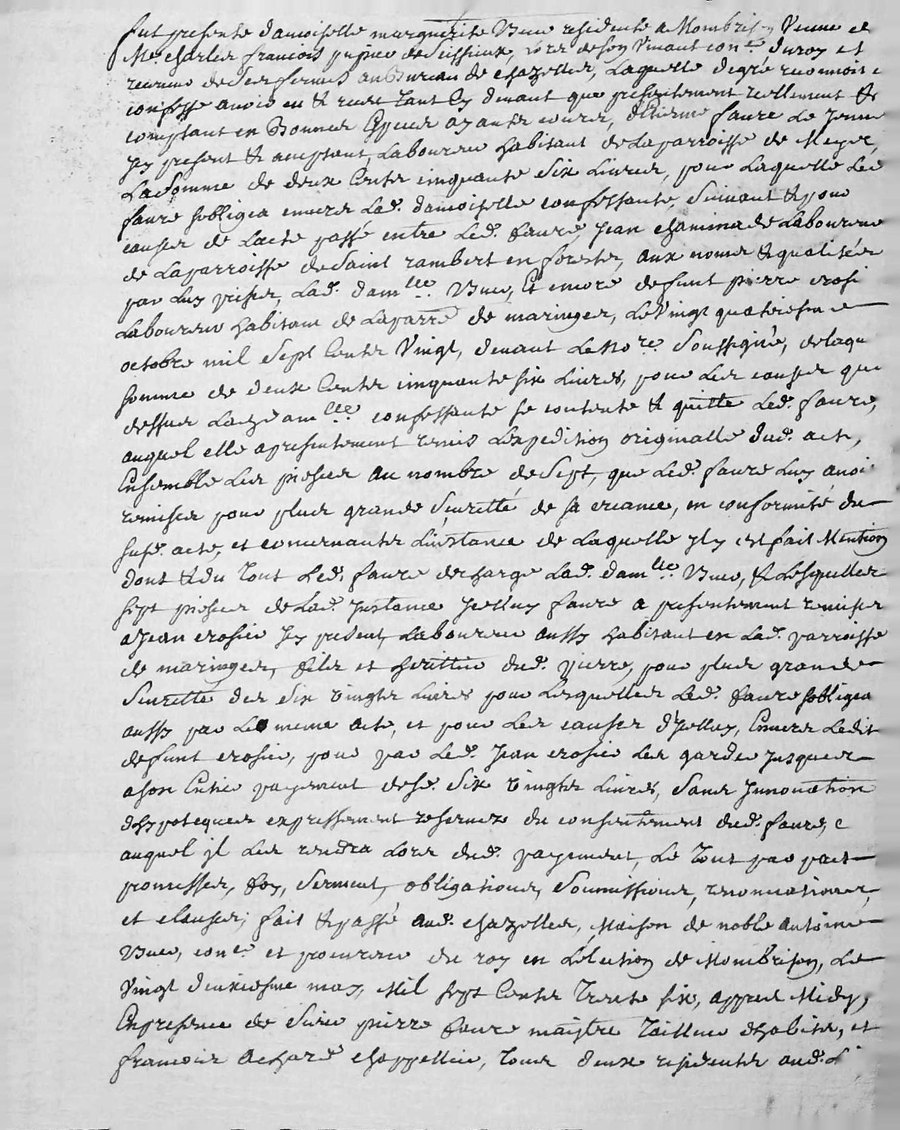 fut presente damoiselle marguerite Buer residente a Mombrison Veuve de
Me charles francois pupier de Sissieux, vivant con.er du roy et
receveur de Ses fermes au Bureau de chazelles, Laquelle de gré reconnoit et
confesse avoir eu et receu tant Cy devant que presentement reellement et
comptant en Bonnes Especes ayants cours, d'Etienne faure Le Jeune
Icy present et acceptant, Laboureur habitant de La parroisse de Meyz,
La Somme de deux Cents cinquante Six Livres, pour Laquelle Led.
faure sobligea envers Lad. damoiselle confessante, Suivant et pour
causes de L'acte passé entre Led. faure, Jean chaminade Laboureur
de La parroisse de Saint rambert en forests, aux noms et qualités
par Luy prises, Lad. dam.lle Buer, Et encore defunt pierre crosi
Laboureur habitant de La parr.e de maringes, Le Vingt quatriesme
octobre mil Sept Cents Vingt, devant Le No.re Soussigné, de laqu
somme de deux Cents cinquante six Livres, pour Les causes que
dessus Lad. dam.lle confessante se contente et quitte Led. faure,
auquel elle a presentement remis L'expedition originalle dud. acte,
Ensemble Les pieces au nombre de Sept, que Led. faure Luy avoi
remises pour plus grande Seuretté de sa creance, en conformité du
susd. acte, et concernantes L'instance de Laquelle Il y est fait Mention
dont et du tout Led. faure decharge Lad. dam.lle Buer, et Lesquelles
sept pieces de Lad. Instance Icelluy faure a presentement remises
a Jean crosier Icy present, Laboureur aussy habitant en Lad. parroisse
de maringes, fils et heritier dud. pierre, pour plus grande
Seuretté des Six vingts Livres pour Lesquelles Led. faure sobligea
aussy par Le meme acte, et pour Les causes d'Icelluy, Envers Ledit
defunt crosier, pour par Led. Jean crosier Les garder Jusques
a son Entier payement desd. Six vingts Livres, Sans Innovation
d'hypoteques expressement reservez du consentement dud. faure,
auquel il Les rendra Lors dud. payement, Le tout par pact
promesses, foy, Serment, obligations, Soumissions, renonciations,
et clauses; fait et passé aud. chazelles, Maison de noble antoine
Buer, con.er et procureur du roy en L'election de Mombrison, Le
Vingt deuxiesme may, Mil Sept Cents trente six, appres Midy,
En presence de Sieur pierre faure maistre tailleur d'habits, et
francois achard chappellier, tous deux residents aud. L